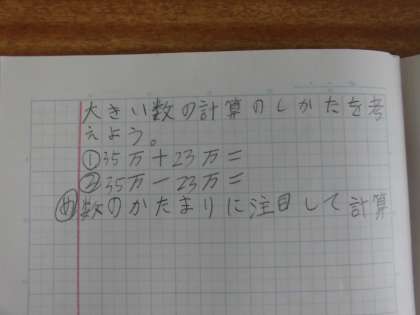 大きい数の計算のしかたを考
えよう。
①35万+23万=
②35万-23万=
め数のかたまりに注目して計算